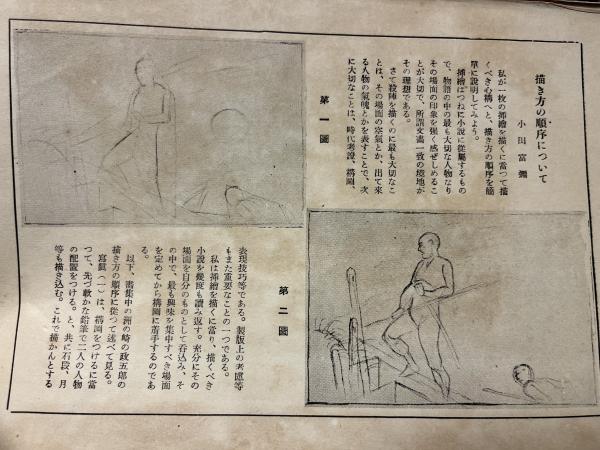 描き方の順序について
小田富彌
私が一枚の挿繪を描くに當つて描
くべき心構へと、描き方の順序を簡
單に説明してみよう。
挿繪はつねに小説に從屬するもの
で、物語の中の最も大切な人物なり
その場面の印象を强く感ぜしめるこ
とが大切で、所謂文畵一致の境地が
その理想である。
さて殺陣を描くのに最も大切なこ
とは、その場面の空氣とか、出て來
る人物の氣魄とかを表すことで、次
に大切なことは、時代考證、構圖、
第一圖
表現技巧等である。製版上の考慮等
もまた重要なことの一つである。
私は挿繪を描くに當り、描くべき
小説を幾度も讀み返す。充分にその
場面を自分のものとして呑込み、そ
の中で、最も興味を集中すべき場面
を定めてから構圖に着手するのであ
る。
以下、畵集中の洲の崎の政五郎の
描き方の順序に從つて述べて見る。
寫眞(一)は、構圖をつけるに當
つて、先づ軟かな鉛筆で二人の人物
の配置をつける。と、共に石段、月
等も描き込む。これで描かんとする
第二圖